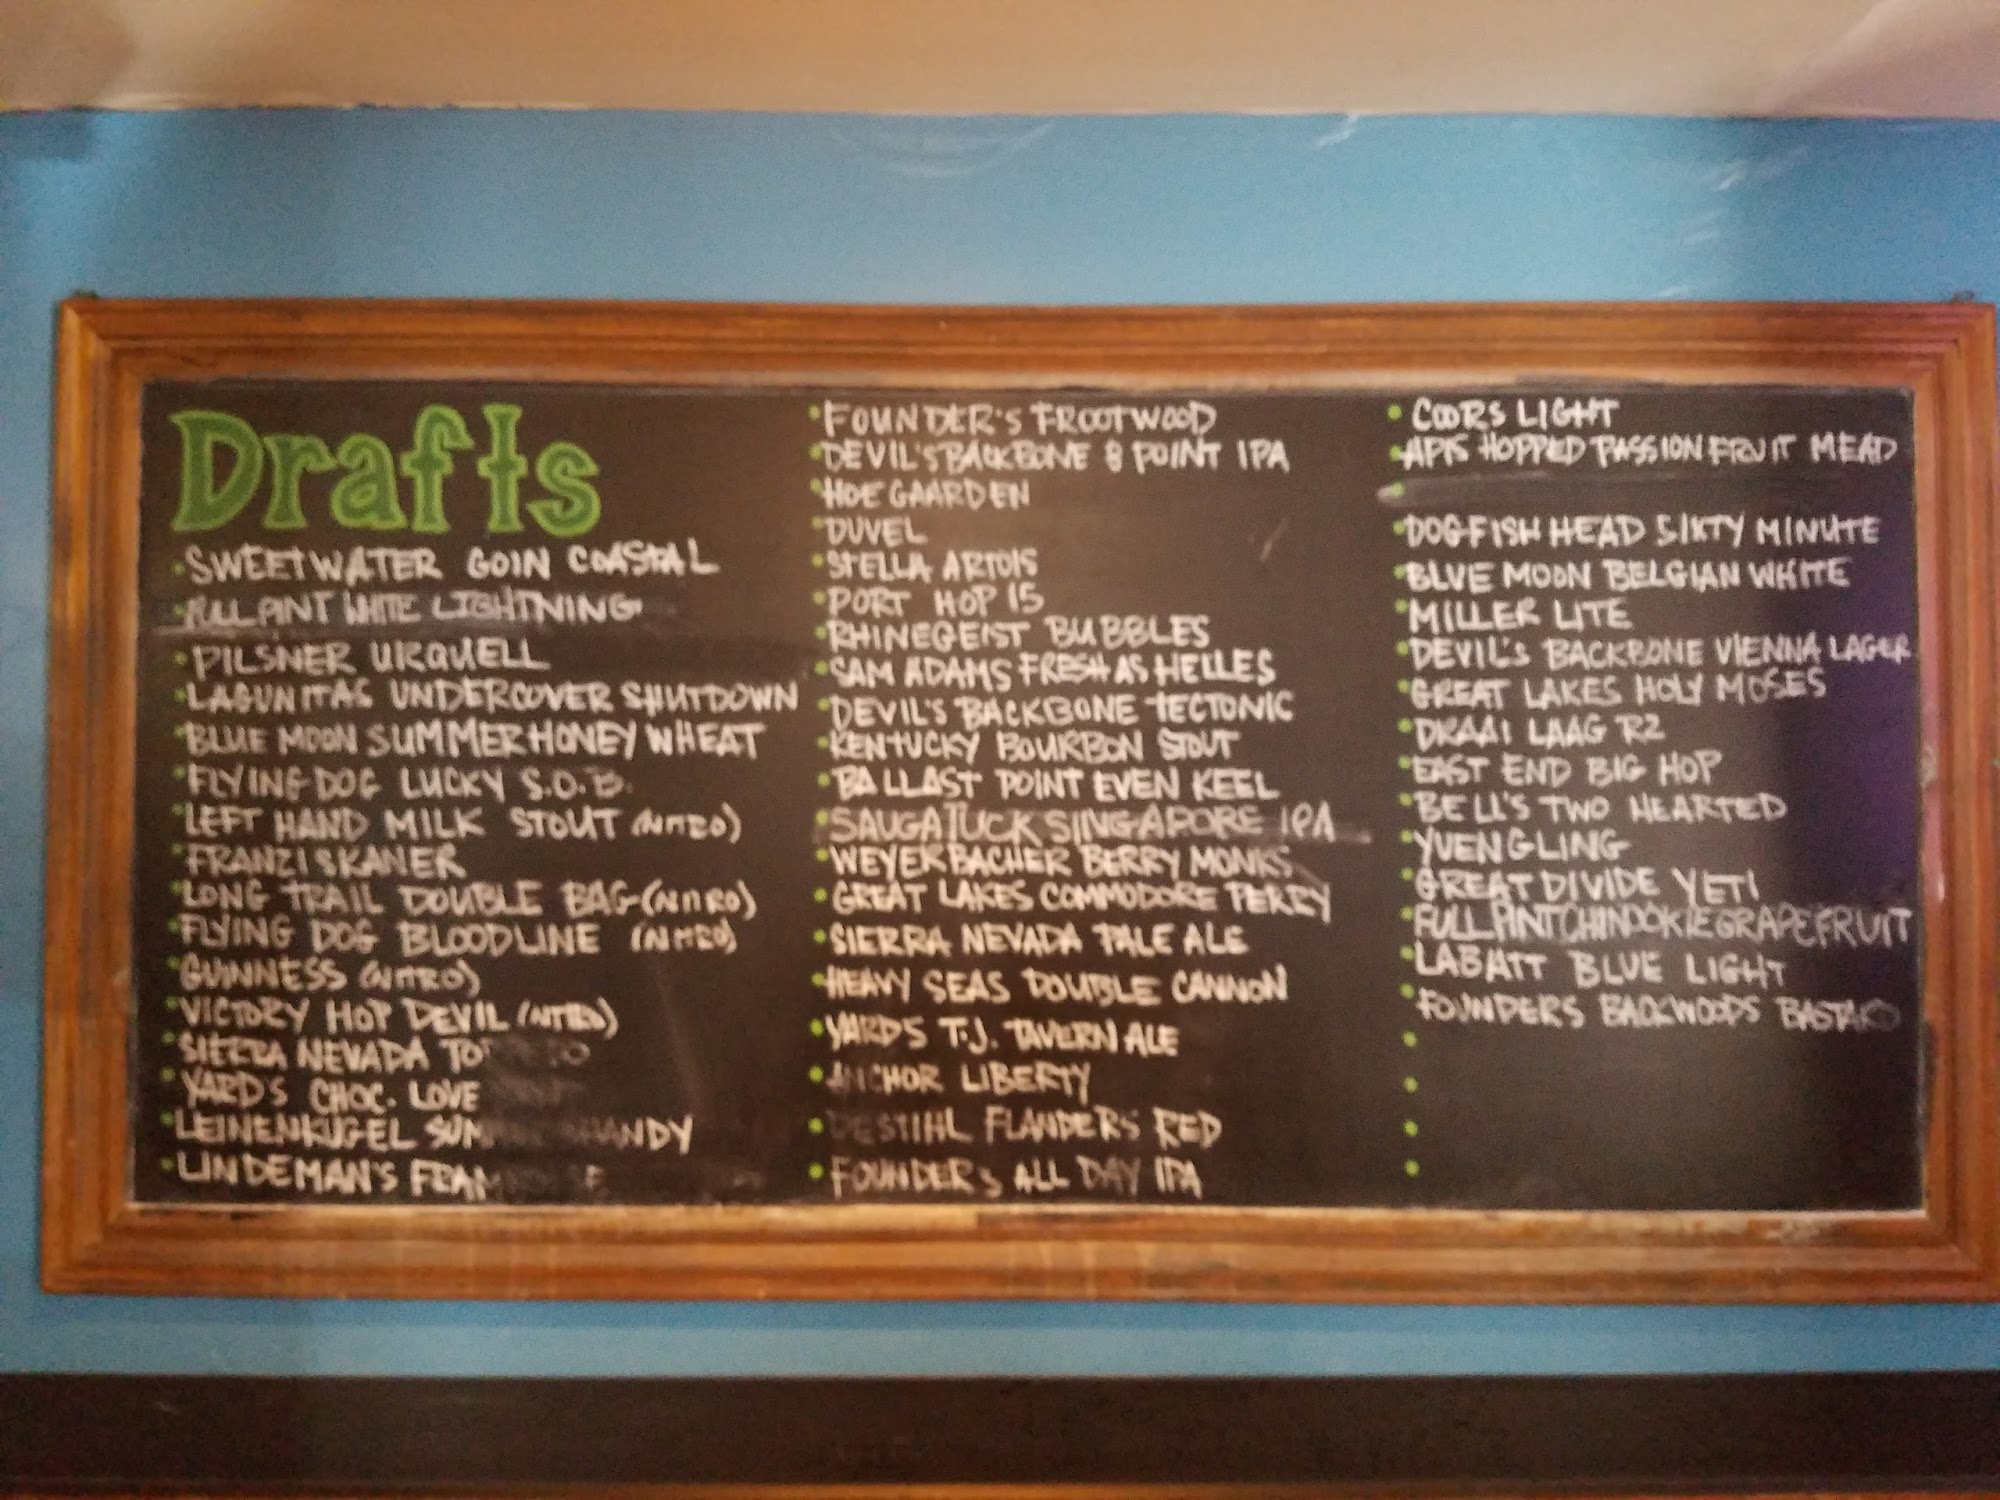 Drafts
SWEETWATER GOIN COASTAL
FULL PINT WHITE LIGHTNING
PILSNER URQUELL
LAGUNITAS UNDERCOVER SHUTDOWN
BLUE MOON SUMMER HONEY WHEAT
FLYING DOG LUCKY S.O.B.
LEFT HAND MILK STOUT (NITRO)
FRANZISKANER
LONG TRAIL DOUBLE BAG (NITRO)
FLYING DOG BLOODLINE (NITRO)
GUINNESS (NITRO)
VICTORY HOP DEVIL (NITRO)
SIERRA NEVADA
YARD'S CHOC. LOVE
LEINENKUGEL
LINDEMAN'S
FOUNDER'S FROOTWOOD
DEVIL'S BACKBONE 8 POINT IPA
HOEGAARDEN
DUVEL
STELLA ARTOIS
PORT HOP 15
RHINEGEIST BUBBLES
SAM ADAMS FRESH AS HELLES
DEVIL'S BACKBONE TECTONIC
KENTUCKY BOURBON STOUT
BALLAST POINT EVEN KEEL
SAUGATUCK SINGAPORE IPA
WEYERBACHER BERRY MONKS
GREAT LAKES COMMODORE PERRY
SIERRA NEVADA PALE ALE
HEAVY SEAS DOUBLE CANNON
YARDS T.J. TAVERN ALE
ANCHOR LIBERTY
DESTIHL FLANDERS RED
FOUNDERS ALL DAY IPA
COORS LIGHT
APIS HOPPED PASSION FRUIT MEAD
DOGFISH HEAD SIXTY MINUTE
BLUE MOON BELGIAN WHITE
MILLER LITE
DEVIL'S BACKBONE VIENNA LAGER
GREAT LAKES HOLY MOSES
DRAAI LAAG R2
EAST END BIG HOP
BELL'S TWO HEARTED
YUENGLING
GREAT DIVIDE YETI
FULL PINT CHINOOKIE GRAPEFRUIT
LABATT BLUE LIGHT
FOUNDERS BACKWOODS BASTARD